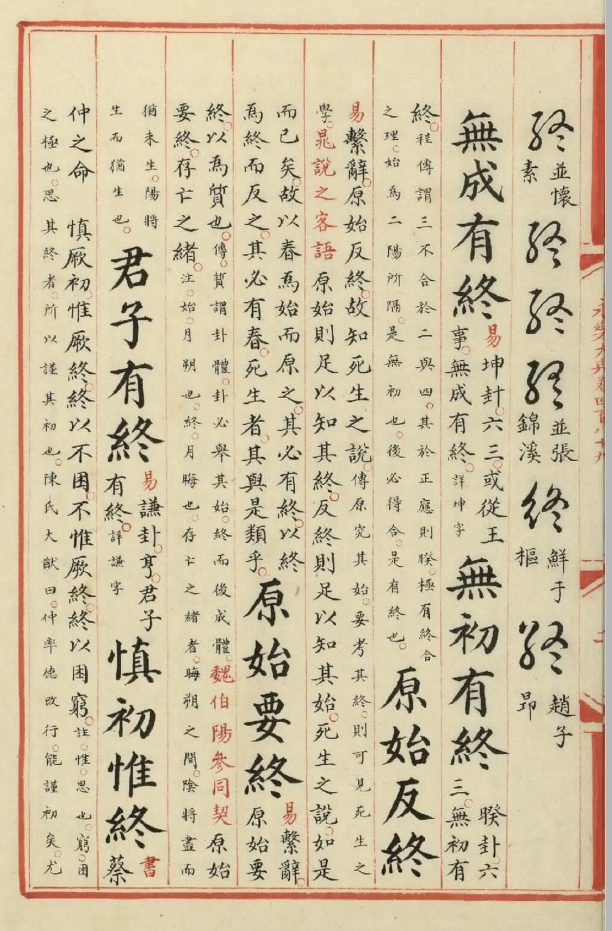 終並懷素終終終並張錦溪終鮮于樞終趙子昂
無成有終易坤卦六三或從王
事無成有終詳坤字
無初有終睽卦六
三無初有
終程傳謂三不合於二與四其於正應則睽極有終合
之理始為二陽所隔是無初也後必得合是有終也
原始反終
易繫辭原始反終故知死生之說傳原究其始要考其終則可見死生之
學晁說之客語原始則足以知其終反終則足以知其始死生之說如是
而已矣故以春為始而原之其必有終以終
為終而反之其必有春死生者其與是類乎
原始要終易繫辭
原始要
終以為質也傳質謂卦體卦必舉其始終而後成體魏伯陽參同契原始
要終存亡之緒注始月朔也終月晦也存亡之緒者晦朔之間陰將盡而
猶未生陽將
生而猶生也
君子有終易謙卦亨君子
有終詳謙字
慎初惟終書
蔡
仲之命慎厥初惟厥終終以不困不惟厥終終以困窮註惟思也窮困
之極也思其終者所以謹其初也陳氏大猷曰仲率德改行能謹初矣尤